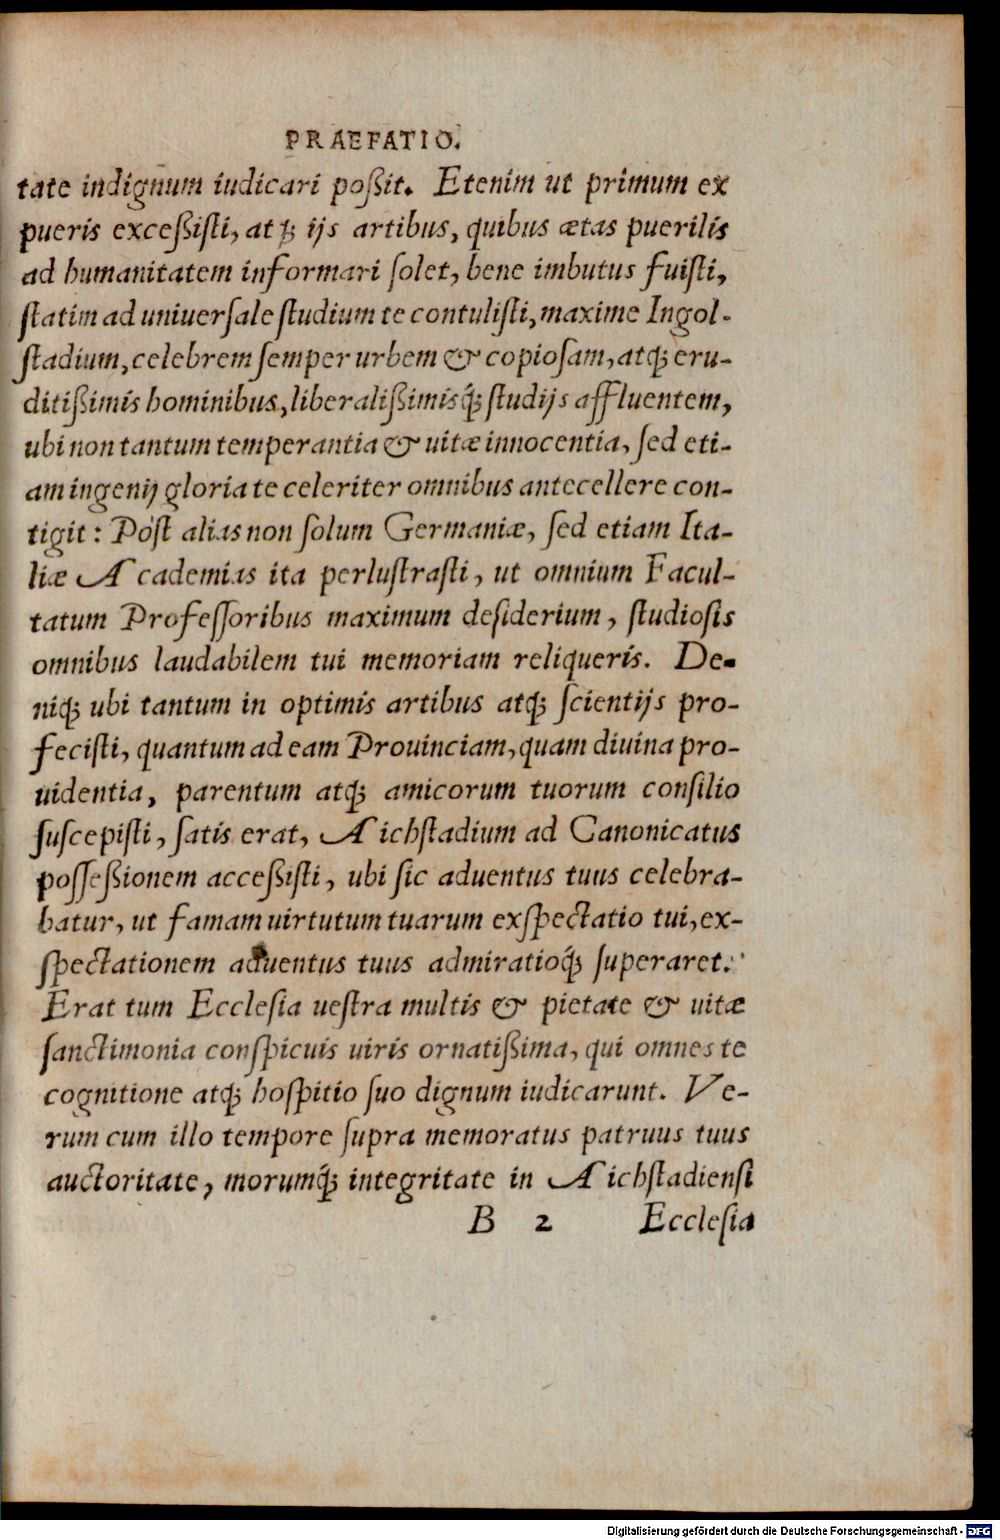 PRAEFATIO.
tate indignum iudicari poßit. Etenim ut primum ex
pueris exceßisti, atq́; ijs artibus, quibus ætas puerilis
ad humanitatem informari solet, bene imbutus fuisti,
statim ad uniuersale studium te contulisti, maxime Ingol-
stadium, celebrem semper urbem & copiosam, atq; eru-
ditißimis hominibus, liberalißimisq́; studijs affluentem,
ubi non tantum temperantia & uitæ innocentia, sed eti-
am ingenij gloria te celeriter omnibus antecellere con-
tigit: Pòst alias non solum Germaniæ, sed etiam Ita-
liæ Academias ita perlustrasti, ut omnium Facul-
tatum Professoribus maximum desiderium, studiosis
omnibus laudabilem tui memoriam reliqueris. De-
niq; ubi tantum in optimis artibus atq; scientijs pro-
fecisti, quantum ad eam Prouinciam, quam diuina pro-
uidentia, parentum atq; amicorum tuorum consilio
suscepisti, satis erat, Aichstadium ad Canonicatus
possessionem acceßisti, ubi sic aduentus tuus celebra-
batur, ut famam uirtutum tuarum exspectatio tui, ex-
spectationem aduentus tuus admiratioq́; superaret.
Erat tum Ecclesia uestra multis & pietate & uitæ
sanctimonia conspicuis uiris ornatißima, qui omnes te
cognitione atq; hospitio suo dignum iudicarunt. Ve-
rum cum illo tempore supra memoratus patruus tuus
auctoritate, morumq́; integritate in Aichstadiensi
B 2 Ecclesia
Digitalisierung gefördert durch die Deutsche Forschungsgemeinschaft - DFG